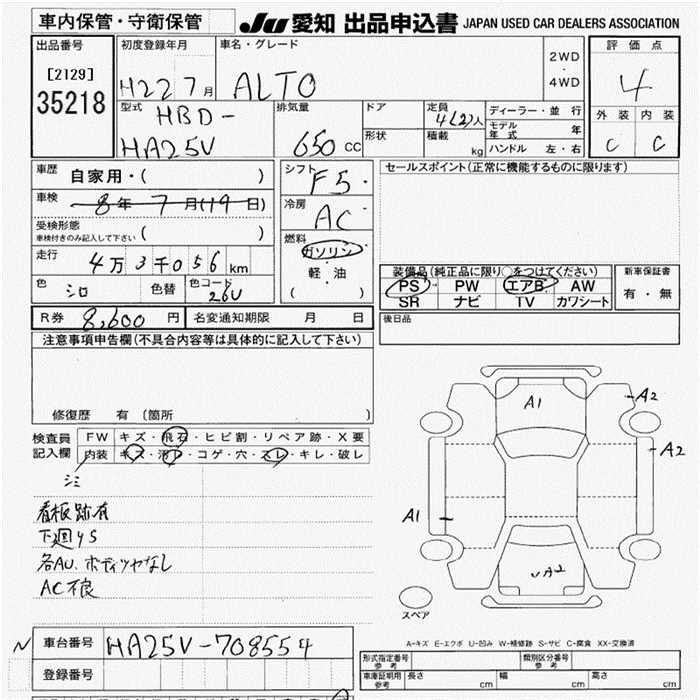 車内保管・守衛保管
JU 愛知 出品申込書 JAPAN USED CAR DEALERS ASSOCIATION
出品番号
[2129]
35218
初度登録年月
H22 7月
車名・グレード
ALTO
2WD
・
4WD
評価点
4
外装 内装
C C
型式
HBD-
HA25V
排気量
650 CC
ドア
形状
定員
4(2)人
積載
kg
ディーラー・並行
モデル年式 年
ハンドル 左・右
車歴
自家用・( )
車検
8年 7月(19日)
受検形態
車検付きのみ記入して下さい ( )
走行
4万3千056km
色
シロ
色替
色コード
26U
シフト
F5・
冷房
AC
燃料
ガソリン
軽・油
( )
セールスポイント(正常に機能するものに限ります)
装備品(純正品に限り○をつけてください)
PS PW エアB AW
SR ナビ TV カワシート
新車保証書
有・無
後日品
R券 8,600円 名変通知期限 月 日
注意事項申告欄(不具合内容等は具体的に記入して下さい)
修復歴 有 〔箇所 〕
検査員
記入欄
FW キズ・飛石・ヒビ割・リペア跡・X要
内装 キズ・汚レ・コゲ・穴・スレ・キレ・破レ
シミ
看板跡有
下廻りS
各AU.ボディツヤなし
AC不良
A1
A2
A2
A1
A2
スペア
A-キズ E-エクボ U-凹み W-補修跡 S-サビ C-腐食 XX-交換済
N
車台番号 HA25V-708554
登録番号
形式指定番号
参考
類別区分番号
参考
車庫証明用
参考
長さ cm 幅 cm 高さ cm